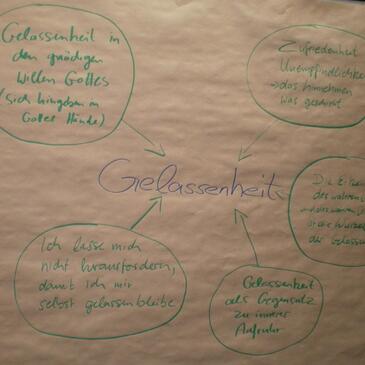 Gelassenheit in
den gnädigen
Willen Gottes
(sich hingeben in
Gottes Hände)
Zufriedenheit
Unempfindlichkei
→ das hinnehmen
was geschieht
Gelassenheit
Die
des wahren
der Gelassen
Ich lasse mich
nicht herausfordern,
damit ich mir
selbst gelassen bleibe
Gelassenheit
als Gegensatz
zu innerer
Aufruhr